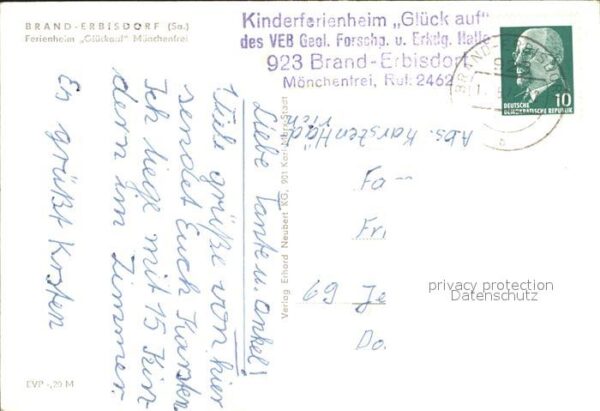 BRAND-ERBISDORF (Sa.)
Ferienheim „Glückauf" Mönchenfrei
Kinderferienheim „Glück auf"
des VEB Geol. Forschg. u. Erkdg. Halle
923 Brand-Erbisdorf
Mönchenfrei, Ruf: 2462
BRAND-ERBISDO
DEUTSCHE
DEMOKRATISCHE REPUBLIK
10
Abs. Karsten Häd
rich
Liebe Tante u. Onkel!
Viele grüße von hier
sendet Euch Karsten.
Ich liege mit 15 Kin
dern im Zimmer.
Es grüßt Krsten
Verlag Erhard Neubert KG, 901 Karl-Marx-Stadt
Fa--
Fri.
69 Je
Do.
privacy protection
Datenschutz
EVP -,20 M